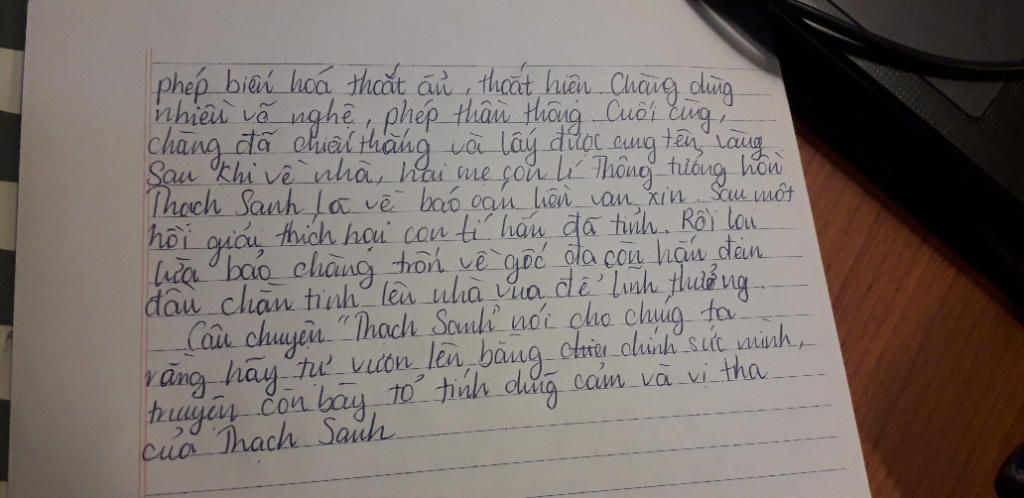 phép biến hoá thoắt ẩn, thoắt hiện. Chàng dùng
nhiều võ nghệ, phép thần thông. Cuối cùng,
chàng đã chiến thắng và lấy được cung tên vàng
Sau khi về nhà, hai mẹ con Lí Thông tưởng hồn
Thạch Sanh la về báo oán liền van xin. Sau một
hồi giải thích hai con tí hắn đã tỉnh. Rồi lou
lừa bảo chàng trốn về gốc đa còn hắn đem
đầu chằn tinh lên nhà vua để lĩnh thưởng.
Câu chuyện "Thạch Sanh" nói cho chúng ta
rằng hãy tự vươn lên bằng chính sức mình,
truyện còn bày tỏ tính dũng cảm và vị tha
của Thạch Sanh